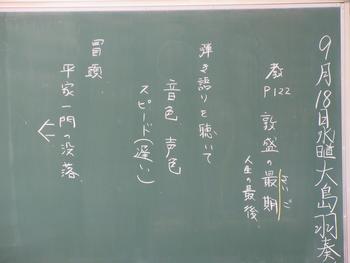 9月18日水曜日 大島羽奏
教P122 敦盛の最期
さいご
人生の最後
弾き語りを聴いて
音色 声色
スピード(遅い)
冒頭
平家一門の没落